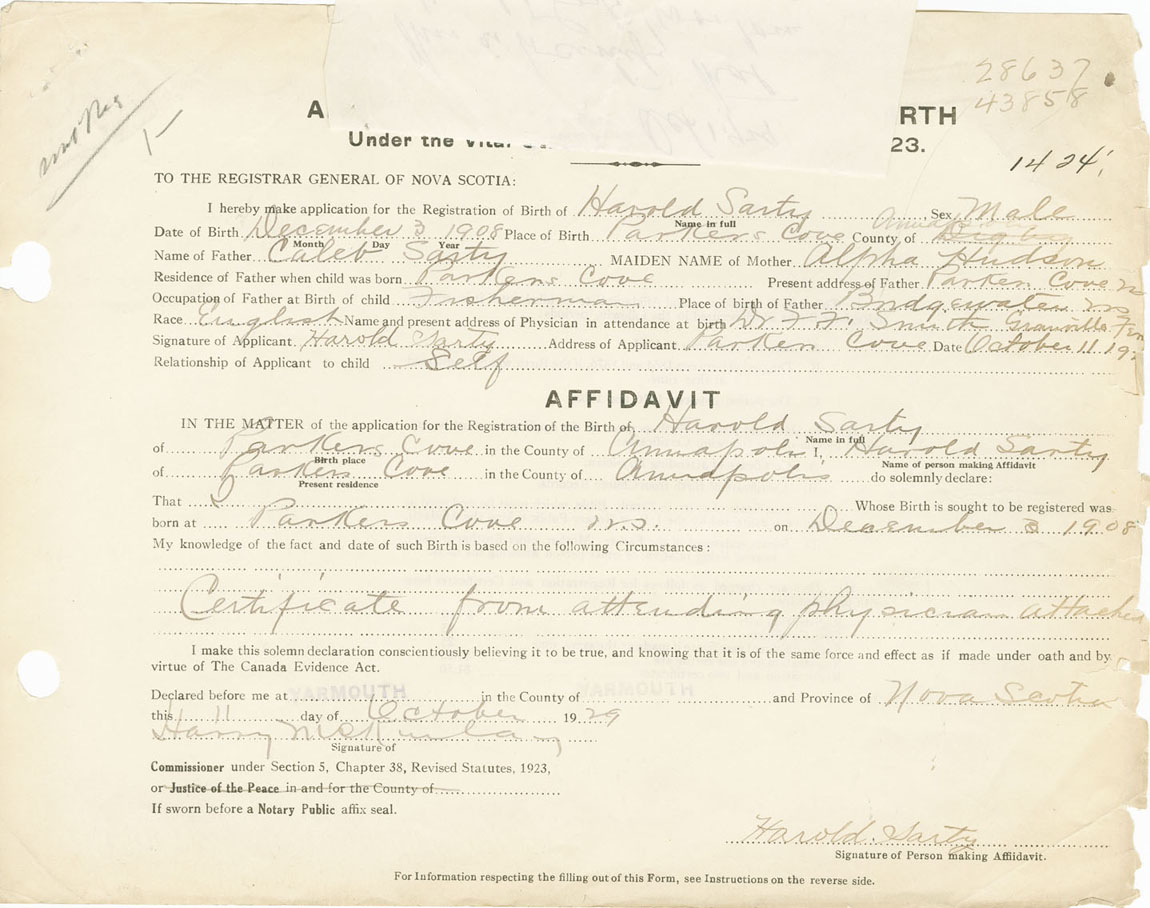 28637
43858
not Reg
A RTH
Under the Vital 23.
1424
TO THE REGISTRAR GENERAL OF NOVA SCOTIA:
I hereby make application for the Registration of Birth of Harold Sarty Sex Male
Name in full
Date of Birth December 3 1908 Place of Birth Parkers Cove County of Digby
Month Day Year
Name of Father Caleb Sarty MAIDEN NAME of Mother Alpha Hudson
Residence of Father when child was born Parkers Cove Present address of Father Parkers Cove
Occupation of Father at Birth of child Fisherman Place of birth of Father Bridgewater
Race English Name and present address of Physician in attendance at birth Dr F. F. Smith Granville
Signature of Applicant Harold Sarty Address of Applicant Parkers Cove Date October 11 19
Relationship of Applicant to child Self
AFFIDAVIT
IN THE MATTER of the application for the Registration of the Birth of Harold Sarty
Name in full
of Parkers Cove in the County of Annapolis I, Harold Sarty
Birth place Name of person making Affidavit
of Parkers Cove in the County of Annapolis do solemnly declare:
Present residence
That Whose Birth is sought to be registered was
born at Parkers Cove N.S. on December 3 1908
My knowledge of the fact and date of such Birth is based on the following Circumstances:
Certificate from attending physician attached
I make this solemn declaration conscientiously believing it to be true, and knowing that it is of the same force and effect as if made under oath and by
virtue of The Canada Evidence Act.
Declared before me at YARMOUTH in the County of YARMOUTH and Province of Nova Scotia
this 11 day of October 1929
Harry McKinlay
Signature of
Commissioner under Section 5, Chapter 38, Revised Statutes, 1923,
or Justice of the Peace in and for the County of
If sworn before a Notary Public affix seal.
Harold Sarty
Signature of Person making Affidavit.
For Information respecting the filling out of this Form, see Instructions on the reverse side.